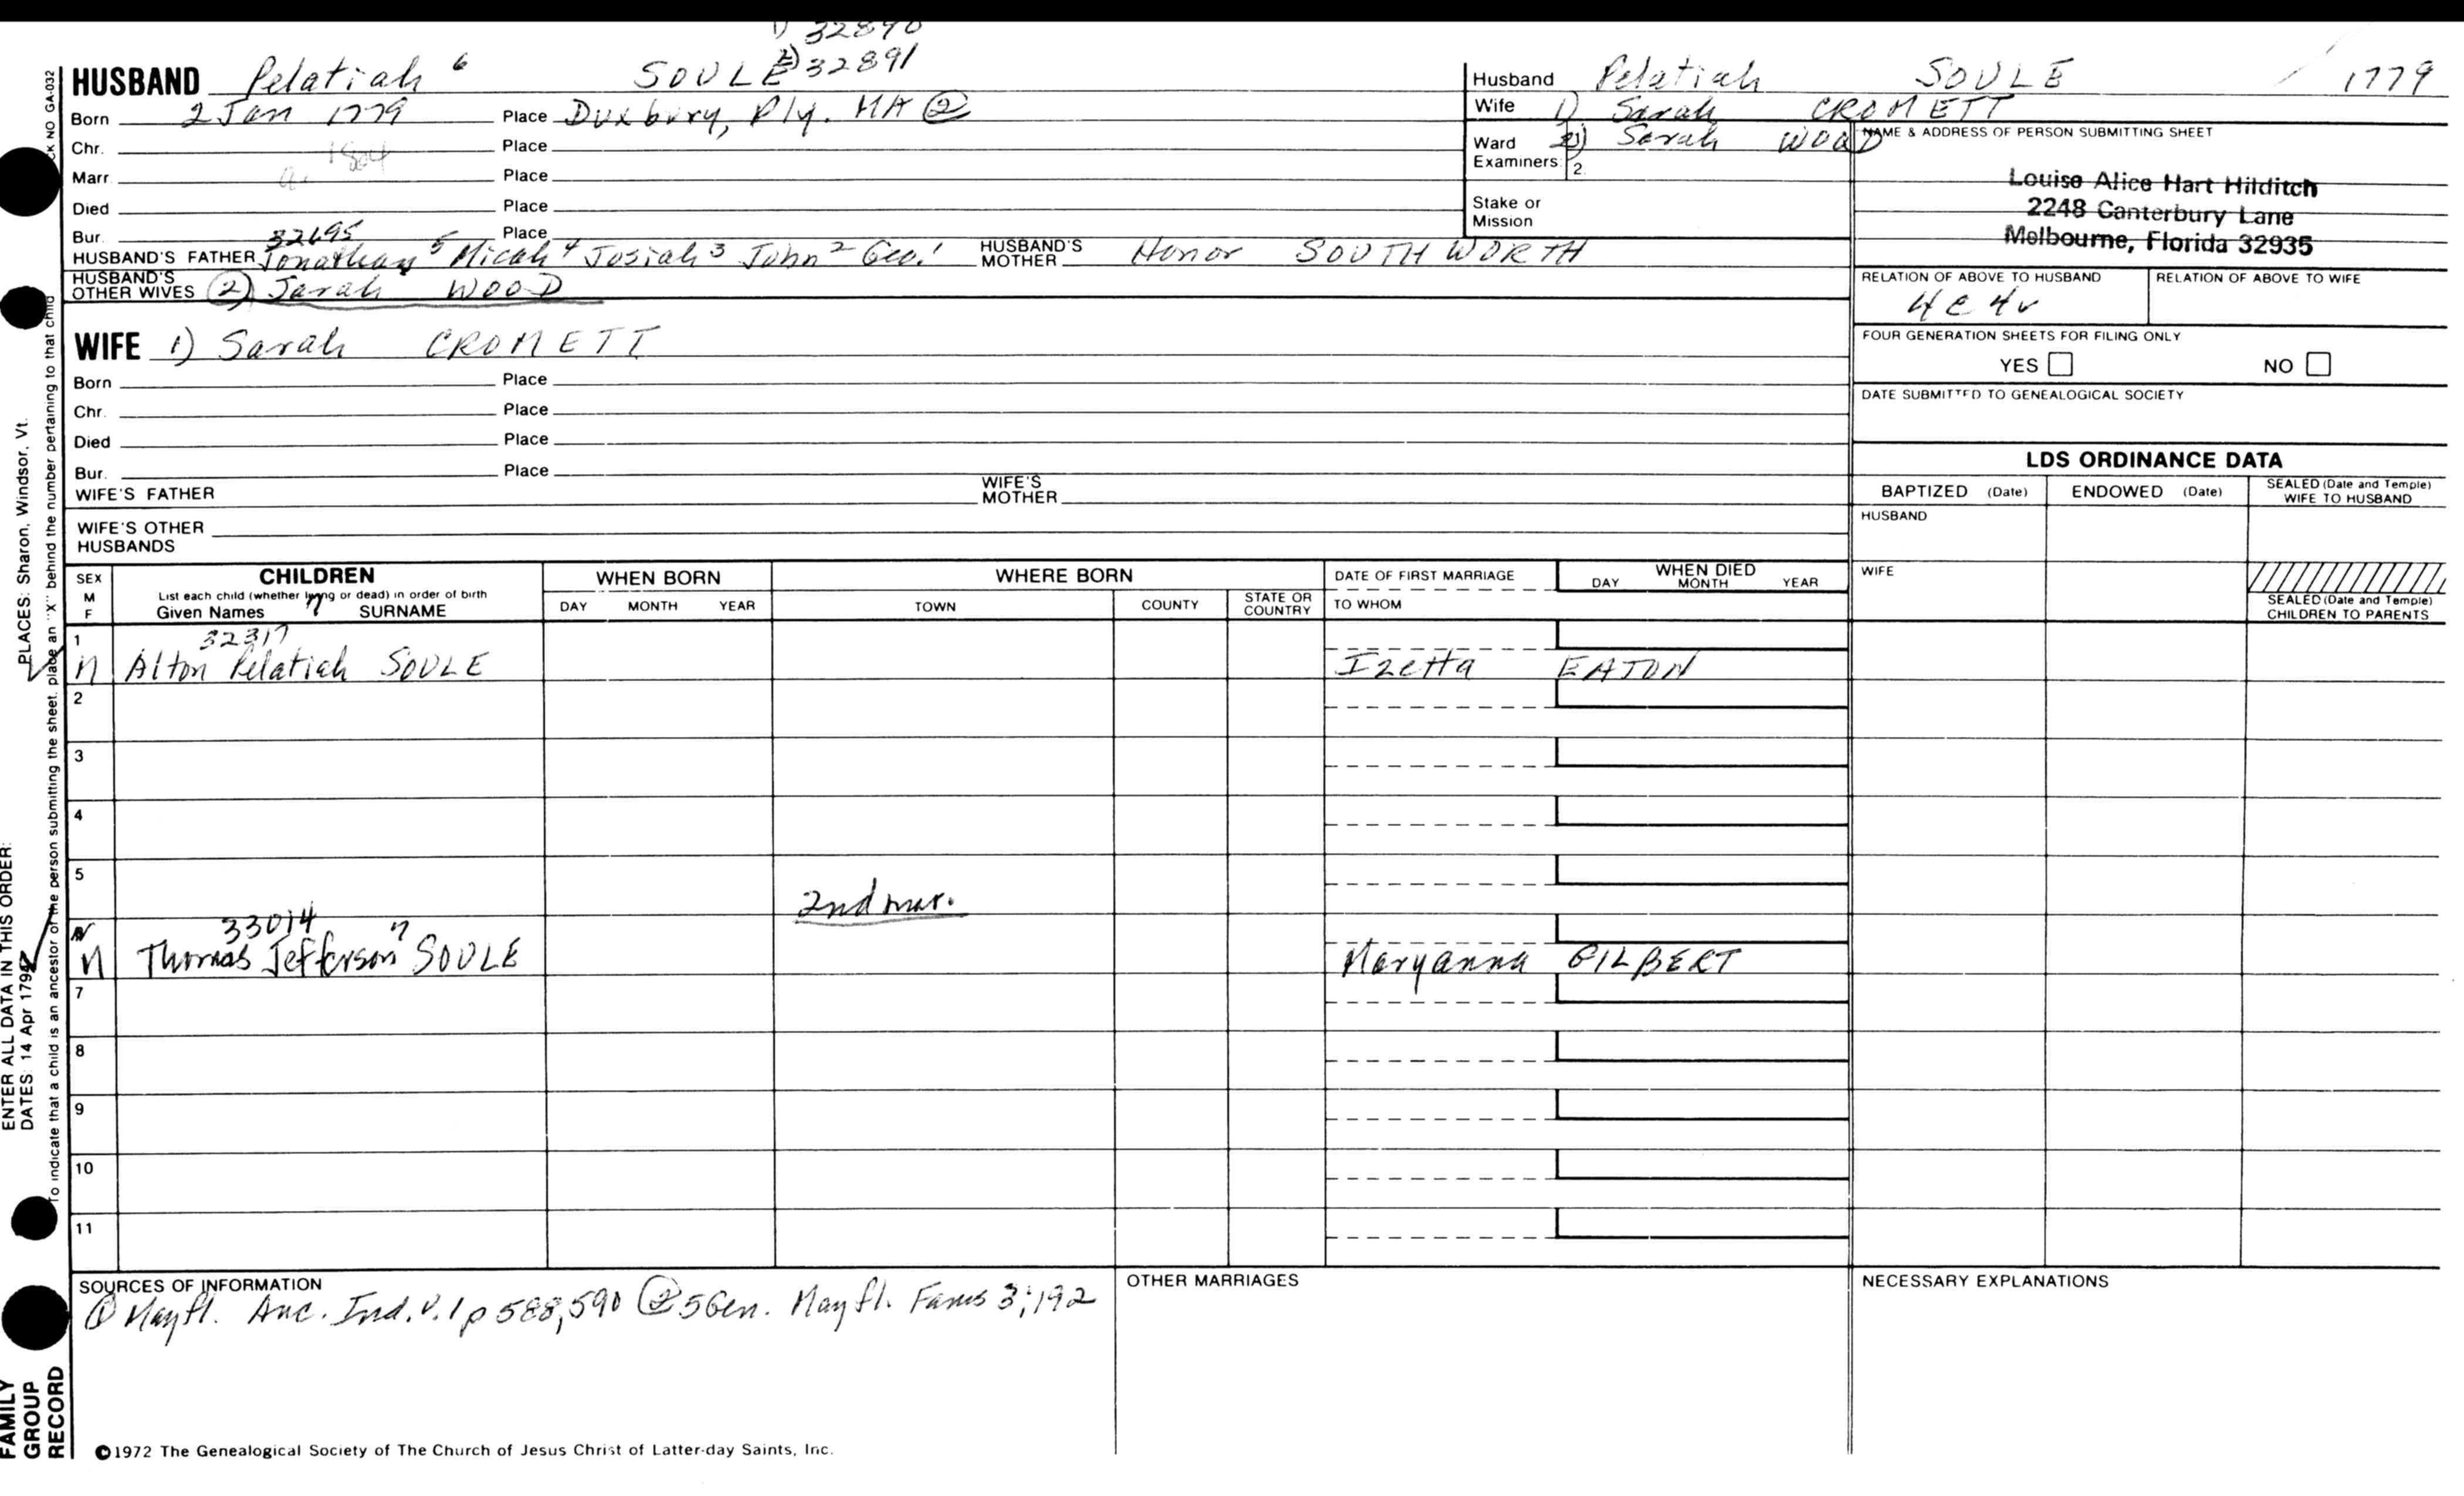 1) 32890
2) 32891
HUSBAND Pelatiah 6 SOULE
Born 2 Jan 1779 Place Duxbury, Ply. MA ②
Chr. Place
Marr. a. 1804 Place
Died Place
Bur. Place
32695
HUSBAND'S FATHER Jonathan 5 Micah 4 Josiah 3 John 2 Geo. 1 HUSBAND'S MOTHER Honor SOUTHWORTH
HUSBAND'S OTHER WIVES (2) Sarah WOOD
WIFE 1) Sarah CROMETT
Born Place
Chr. Place
Died Place
Bur. Place
WIFE'S FATHER WIFE'S MOTHER
WIFE'S OTHER HUSBANDS
Husband Pelatiah SOULE 1779
Wife 1) Sarah CROMETT
Ward 2) Sarah WOOD
Examiners: 2.
Stake or Mission
NAME & ADDRESS OF PERSON SUBMITTING SHEET
Louise Alice Hart Hilditch
2248 Canterbury Lane
Melbourne, Florida 32935
RELATION OF ABOVE TO HUSBAND RELATION OF ABOVE TO WIFE
4c4r
FOUR GENERATION SHEETS FOR FILING ONLY
YES NO
DATE SUBMITTED TO GENEALOGICAL SOCIETY
LDS ORDINANCE DATA
BAPTIZED (Date) ENDOWED (Date) SEALED (Date and Temple) WIFE TO HUSBAND
HUSBAND
WIFE
SEALED (Date and Temple) CHILDREN TO PARENTS
SEX M F
CHILDREN
List each child (whether living or dead) in order of birth
Given Names 7 SURNAME
WHEN BORN
DAY MONTH YEAR
WHERE BORN
TOWN COUNTY STATE OR COUNTRY
DATE OF FIRST MARRIAGE
TO WHOM
WHEN DIED
DAY MONTH YEAR
1 32317
M Alton Pelatiah SOULE Izetta EATON
2
3
4
5
2nd mar.
33014 7
M Thomas Jefferson SOULE Maryanna GILBERT
7
8
9
10
11
SOURCES OF INFORMATION
① Mayfl. Anc. Ind. v. 1 p 588, 590 ② 5 Gen. Mayfl. Fams 3:192
OTHER MARRIAGES
NECESSARY EXPLANATIONS
©1972 The Genealogical Society of The Church of Jesus Christ of Latter-day Saints, Inc.
FAMILY
GROUP
RECORD
ENTER ALL DATA IN THIS ORDER:
DATES: 14 Apr 1794
PLACES: Sharon, Windsor, Vt.
To indicate that a child is an ancestor of the person submitting the sheet, place an "X" behind the number pertaining to that child
CK NO GA-032